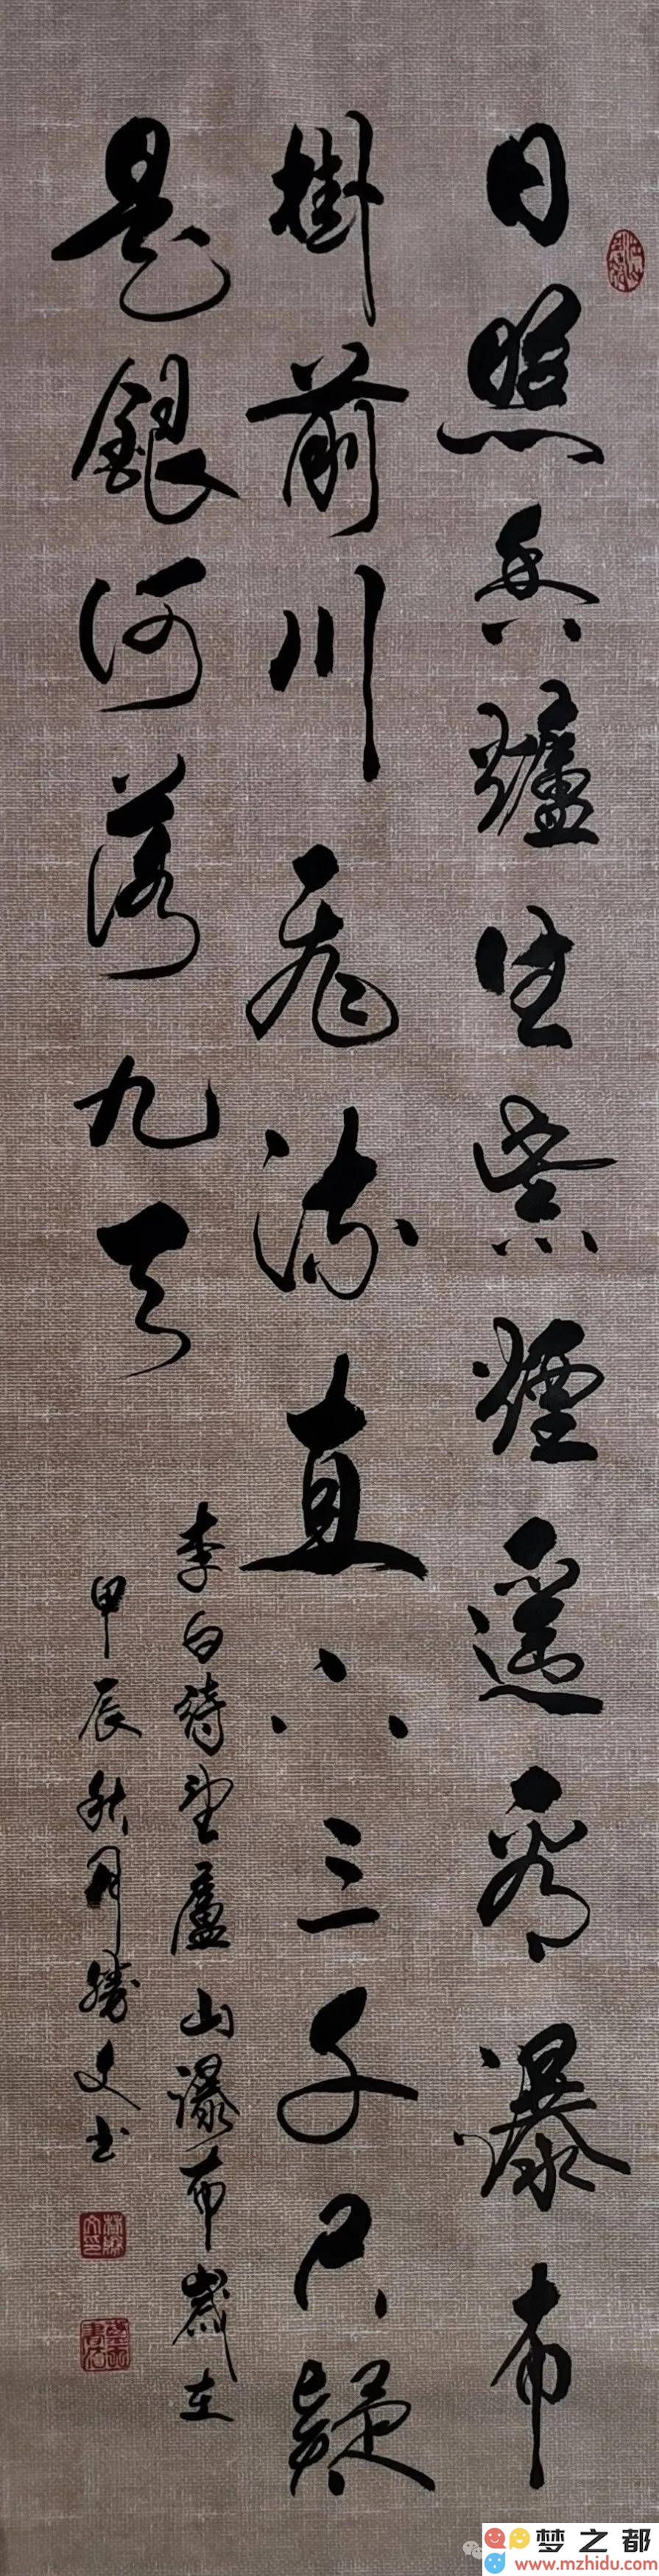 日照香爐生紫煙遥看瀑布
掛前川飛流直下三千尺疑
是銀河落九天
李白詩望廬山瀑布歲在
甲辰秋月勝文书
梦之都
www.mzhidu.com